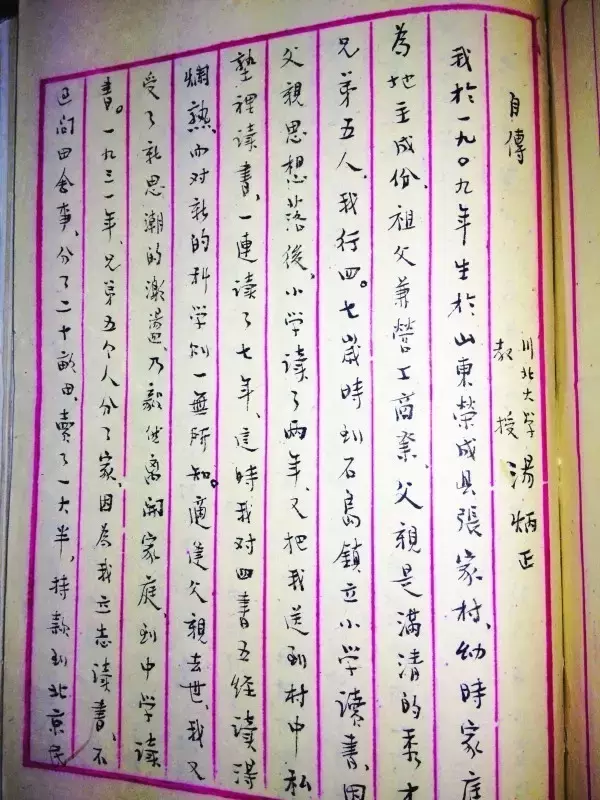 自傳
川北大学
教授 湯炳正
我於一九〇九年生於山東榮成具張家村、幼時家庭
為地主成份、祖父兼營工商業、父親是滿清的秀才
兄弟五人、我行四。七歲時到石島鎮立小学讀書、因
父親思想落後、小学读了兩年、又把我送到村中私
塾裡读書、一連读了七年、這時我对四書五经读得
爛熟、而对新的科学则一無所知。適逢父親去世、我又
受了新思潮的激盪、乃毅然离開家庭、到中学读
書。一九三一年、兄弟五个人分了家、因為我立志读書、不
過问田舍事、分了二十畝田、賣了一大半、持款到北京民